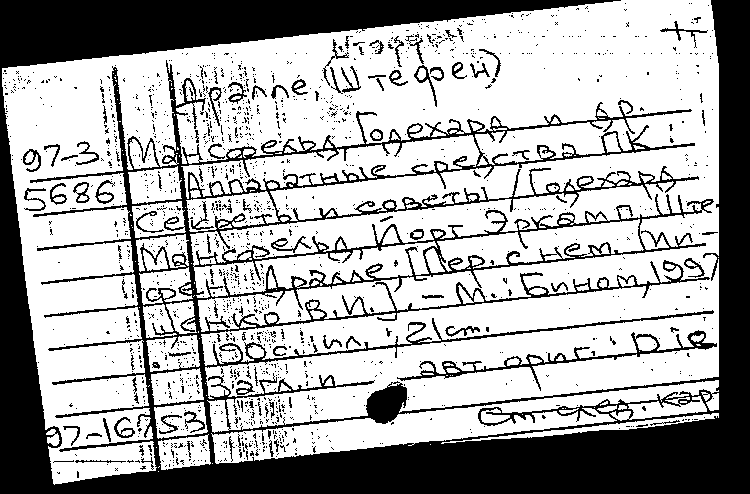 Штэффен
Дралле, (Штефен)
97-3 Мансфельд, Годехард и др.
5686 Аппаратные средства ПК :
Секреты и советы / Годехард
Мансфельд, Йорг Эркамп, Ште-
фен Дралле; [Пер. с нем. Ми-
щенко В.И.]. – М.: Бином, 1997
. – 190с.: ил. ; 21см.
Загл. и авт. ориг.: Die
97-16753 См. след. кар-